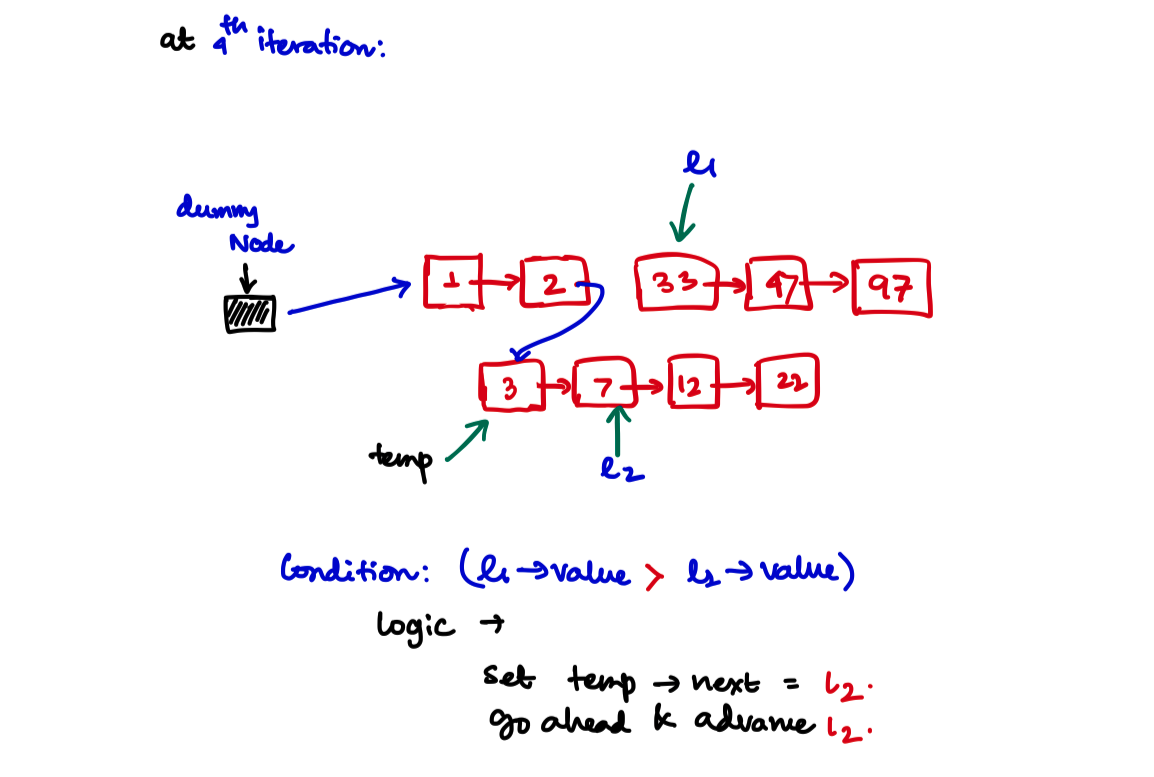 at 4th iteration:
l1
dummy
Node
1 → 2 33 → 47 → 97
3 → 7 → 12 → 22
temp
l2
Condition: (l1 → value > l2 → value)
logic →
set temp → next = l2.
go ahead & advance l2.